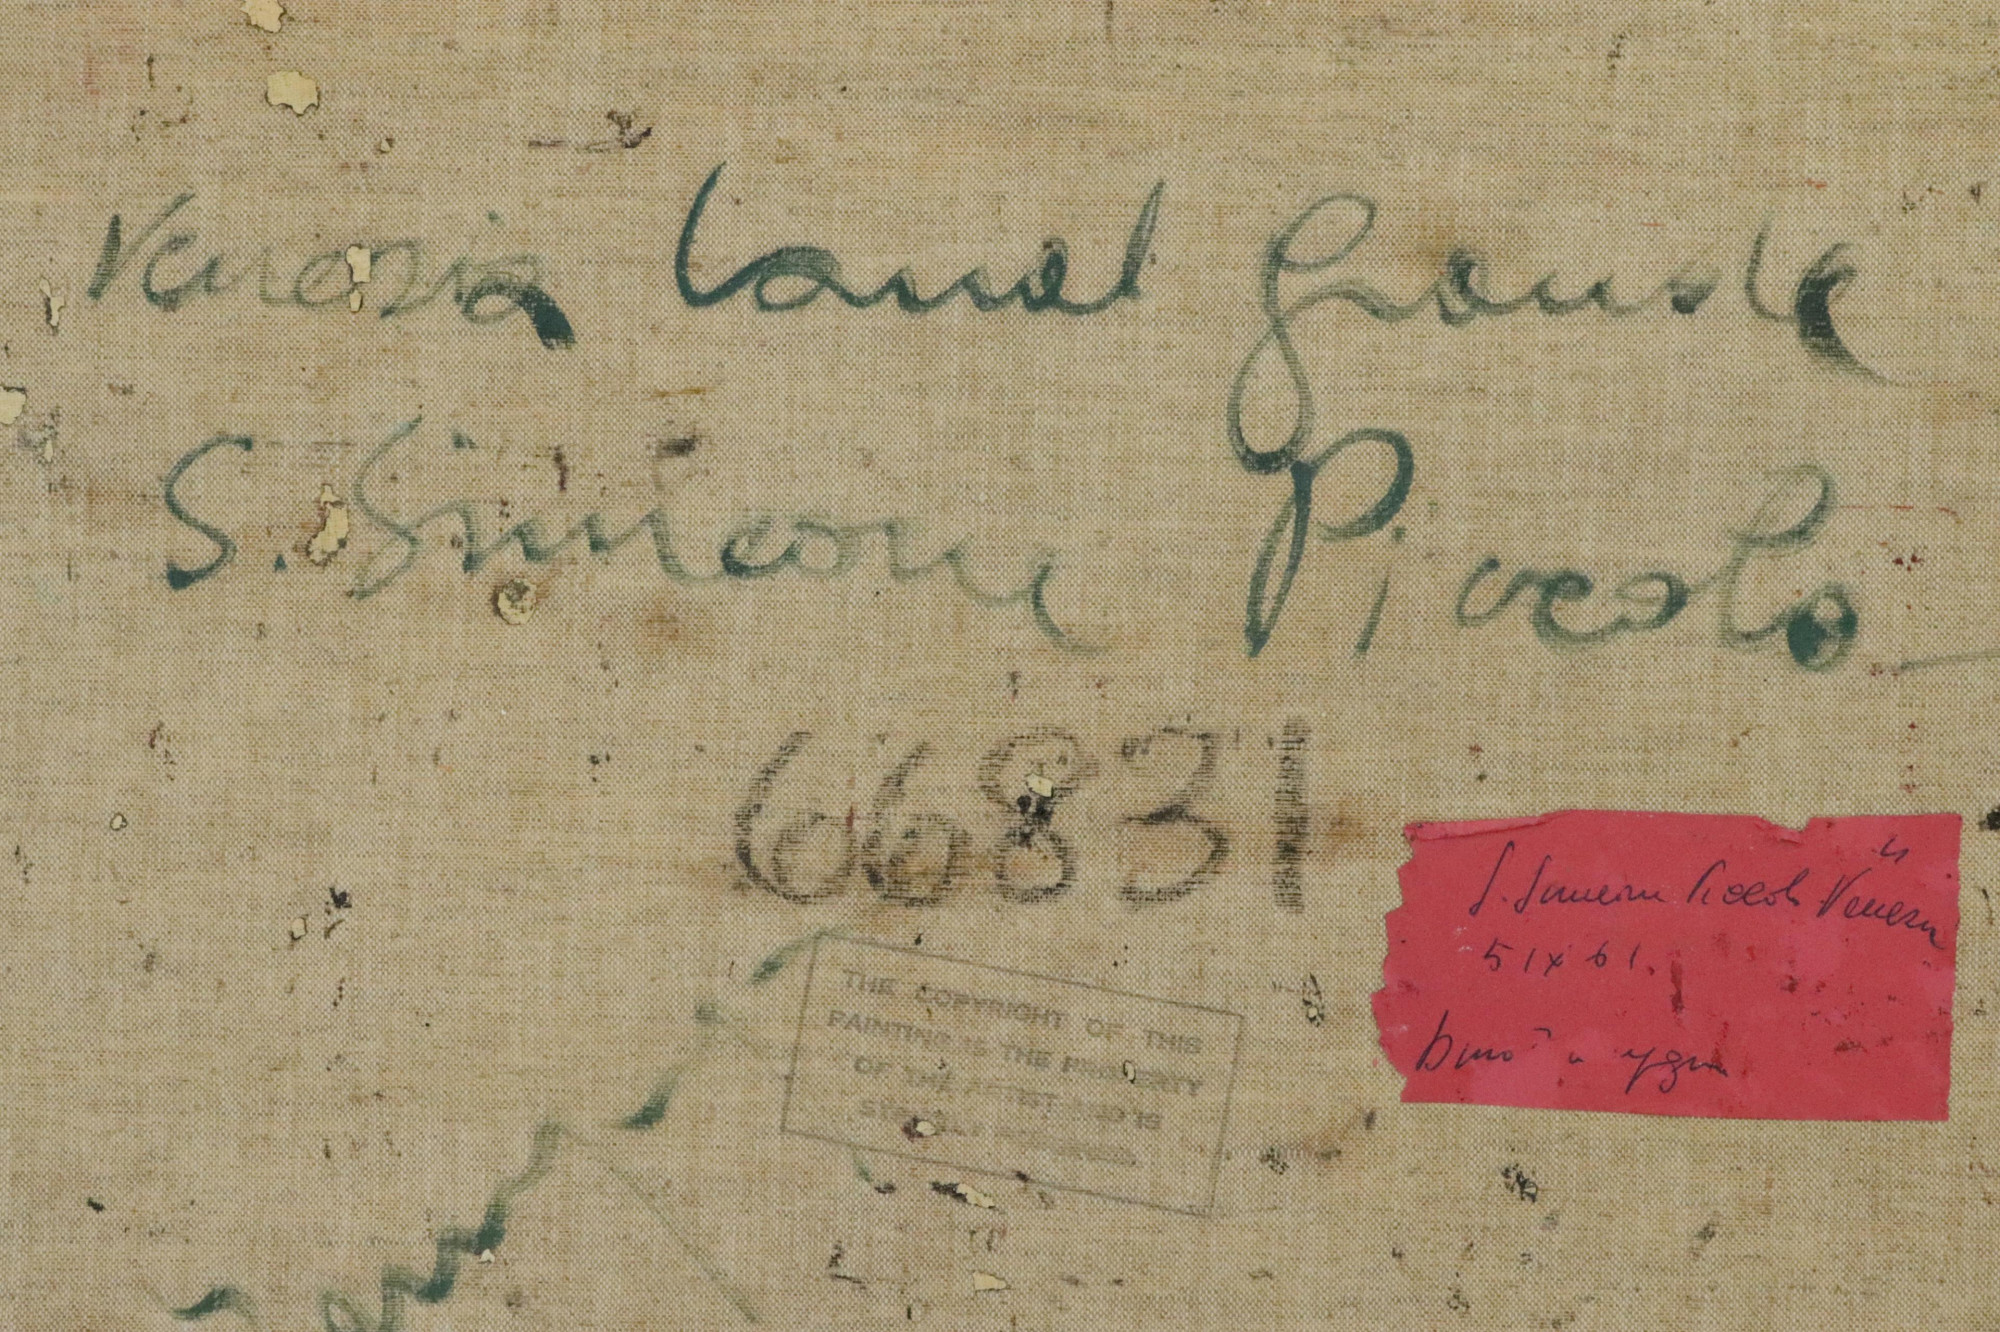 Venezia Canal Grande
S. Simeone Piccolo
66831
S. Simeone Piccolo Venezia
51x61.
THE COPYRIGHT OF THIS
PAINTING IS THE PROPERTY
OF THE ARTIST AND IS